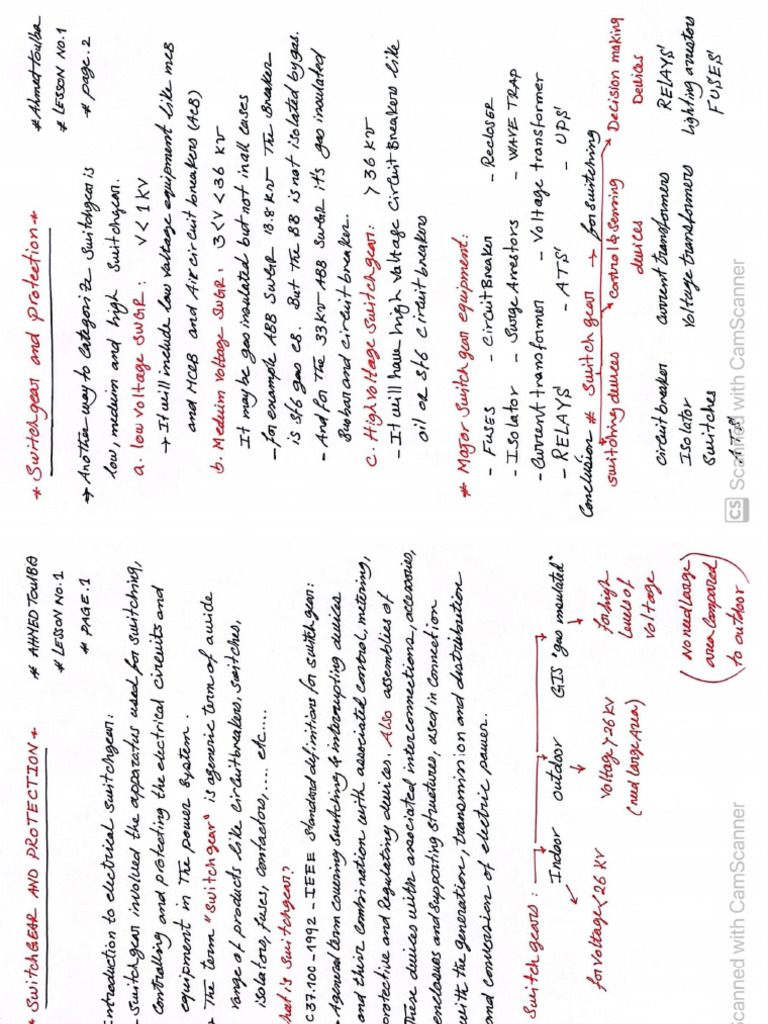 * SwitchGEAR AND PROTECTION *
# AHMED TOUlBA
# LESSON NO.1
# PAGE.1
Introduction to electrical switchgear:
- Switchgear involved the apparatus used for switching,
controlling and protecting the electrical circuits and
equipment in The power system.
The term "switchgear" is ageneric term of awide
range of products like circuitbreakers, switches,
isolators, fuses, contactors, .... etc....
hat is Switchgear?
C37.100-1992-IEEE Standard definitions for switchgear:
- Ageneral term covering switching & interrupting devices
and their combination with associated control, metering,
protective and Regulating devices. Also assemblies of
These devices with associated interconnections, accessories,
enclosures and supporting structures, used in connection
with the generation, transmission and distribution
and conversion of electric power.
Switchgears:
Indoor outdoor GIS "gas insulated"
for voltage<26 KV
Voltage >26 KV
(need large Area)
for high
levels of
voltage
(No need large
area compared
to outdoor)
Scanned with CamScanner
* Switchgear and protection *
#Ahmed toulba
# LESSON NO.1
# page.2
→ Another way to categorize switchgear is
low, medium and high switchgear.
a. low voltage SWGR: V<1KV
→ It will include low voltage equipment like mcB
and MCCB and Air circuit breakers (AcB)
b. Meduim voltage SWGR: 3<V<36 KV
It may be gas insulated but not in all cases
- for example ABB SWGR 13.8 KV The Breaker
is Sf6 gas CB. But the BB is not isolated by gas.
- And for The 33KV ABB SWGR it's gas insulated
Busbar and circuit breaker.
C. High voltage Switchgear: >36 KV
- It will have high voltage circuit Breakers like
oil or Sf6 circuit breakers
# Major Switchgear equipment:
- FUSES - Circuit Breaker - Recloser
- Isolator - Surge Arrestors - WAVE TRAP
- Current transformer - Voltage transformer
- RELAYS' - ATS' - UPS'
Conclusion # Switchgear → for switching
switching devices control & sensing devices Decision making Devices
circuit breaker current transformers RELAYS'
Isolator Voltage transformers lighting arrestors
Switches FUSES'
ATS'
CS Scanned with CamScanner